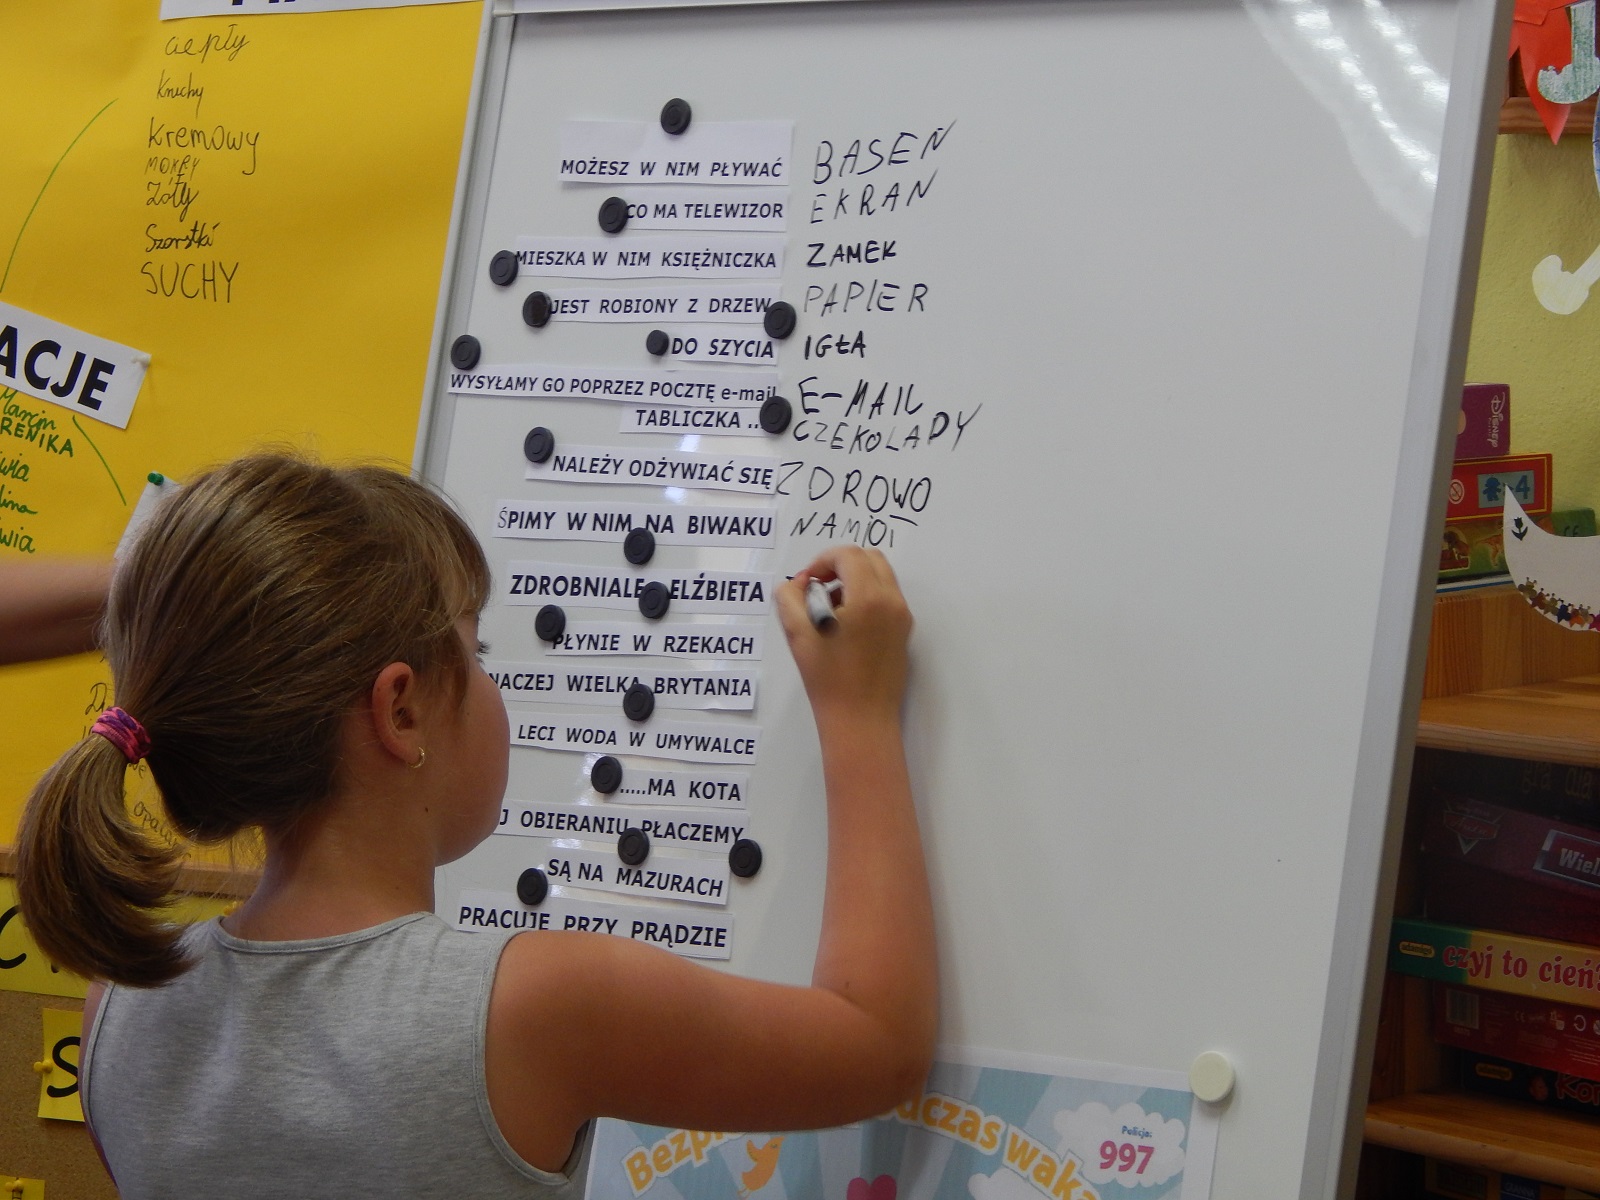 ciepły
kremowy
MOKRY
żółty
Szorstki
SUCHY
ACJE
Marcin
RENIKA
MOŻESZ W NIM PŁYWAĆ BASEN
CO MA TELEWIZOR EKRAN
MIESZKA W NIM KSIĘŻNICZKA ZAMEK
JEST ROBIONY Z DRZEW PAPIER
DO SZYCIA IGŁA
WYSYŁAMY GO POPRZEZ POCZTĘ e-mail E-MAIL
TABLICZKA ... CZEKOLADY
NALEŻY ODŻYWIAĆ SIĘ ZDROWO
ŚPIMY W NIM NA BIWAKU NAMIOT
ZDROBNIALE ELŹBIETA
PŁYNIE W RZEKACH
NACZEJ WIELKA BRYTANIA
LECI WODA W UMYWALCE
.....MA KOTA
J OBIERANIU PŁACZEMY
SĄ NA MAZURACH
PRACUJE PRZY PRĄDZIE
DISNEY
4
Wiel
czyj to cień?
S
Bezpi dczas waka
Policja:
997